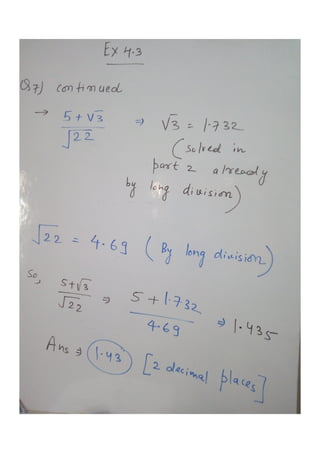 Ex 4.3
Q.7) continued
→ 5+√3 / √22 ⇒ √3 = 1.732
(solved in
part 2 already
by long division)
√22 = 4.69 (By long division)
So,
5+√3 / √22 ⇒ 5+1.732 / 4.69 ⇒ 1.435
Ans ⇒ 1.43 [2 decimal places]